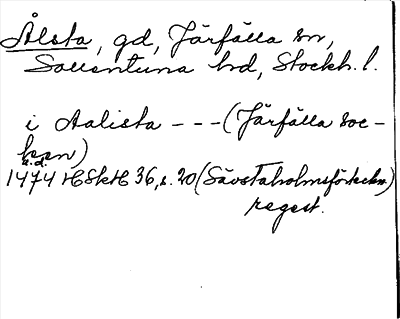 Ålsta, gd, Järfälla sn,
Sollentuna hd, Stockh. l.
i Aalista - - - (Järfälla soc-
ken)
u.d.
1474 HSkH 36, s. 20 (Sävstaholmsförteckn.)
regest.